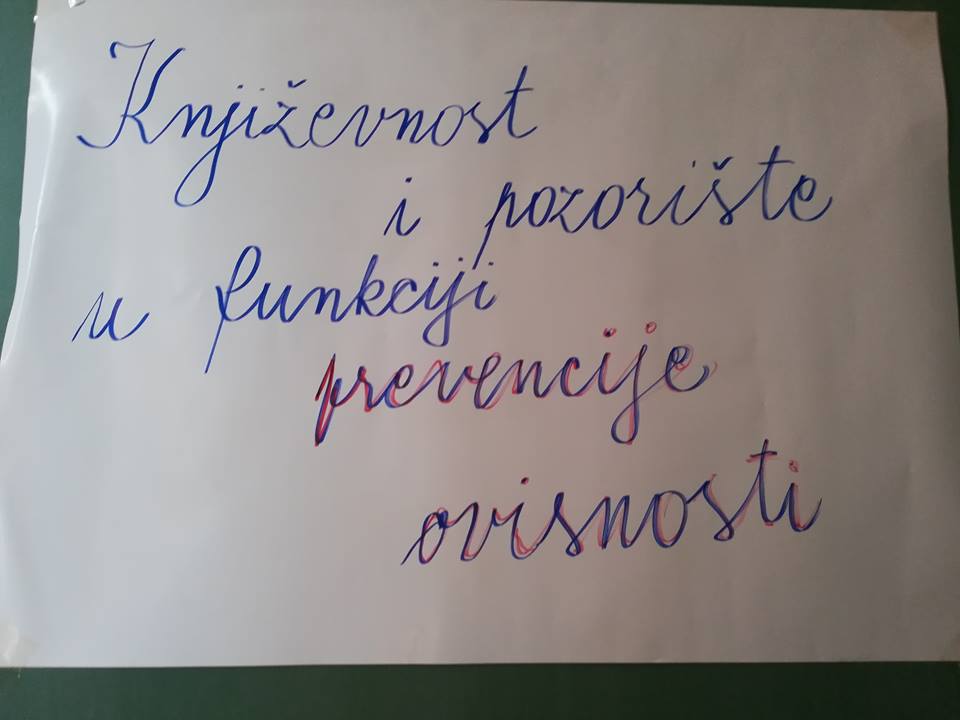 Književnost
i pozorište
u funkciji
prevencije
ovisnosti